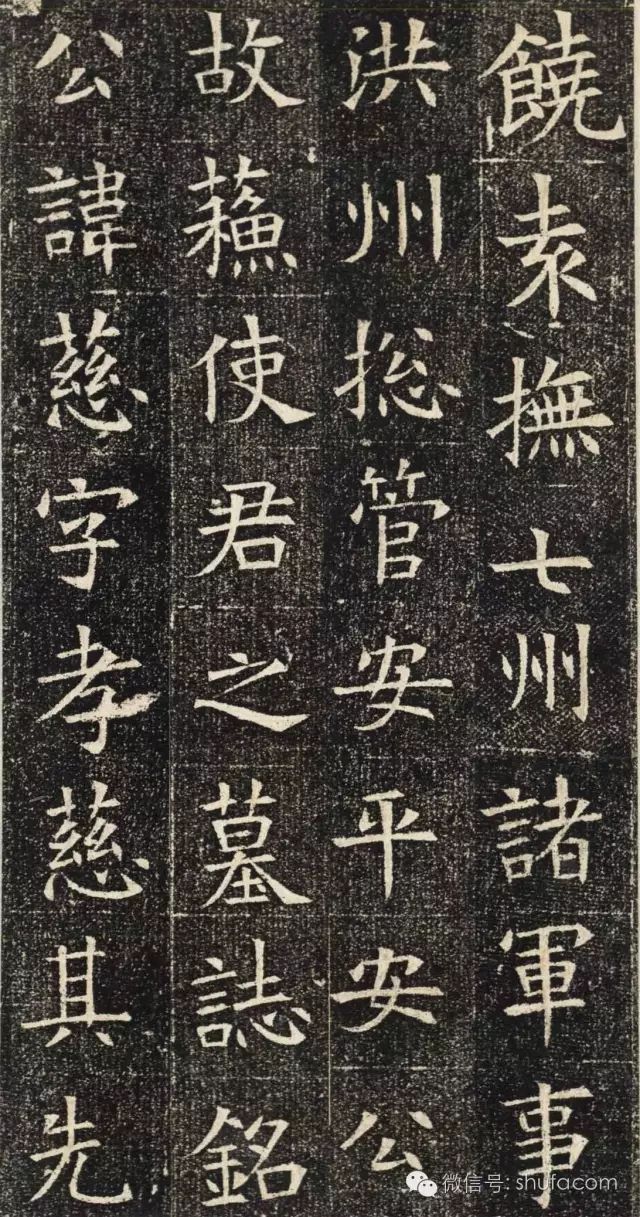 饒袁撫七州諸軍事
洪州捴管安平安公
故蘓使君之墓誌銘
公諱慈字孝慈其先
微信号: shufacom